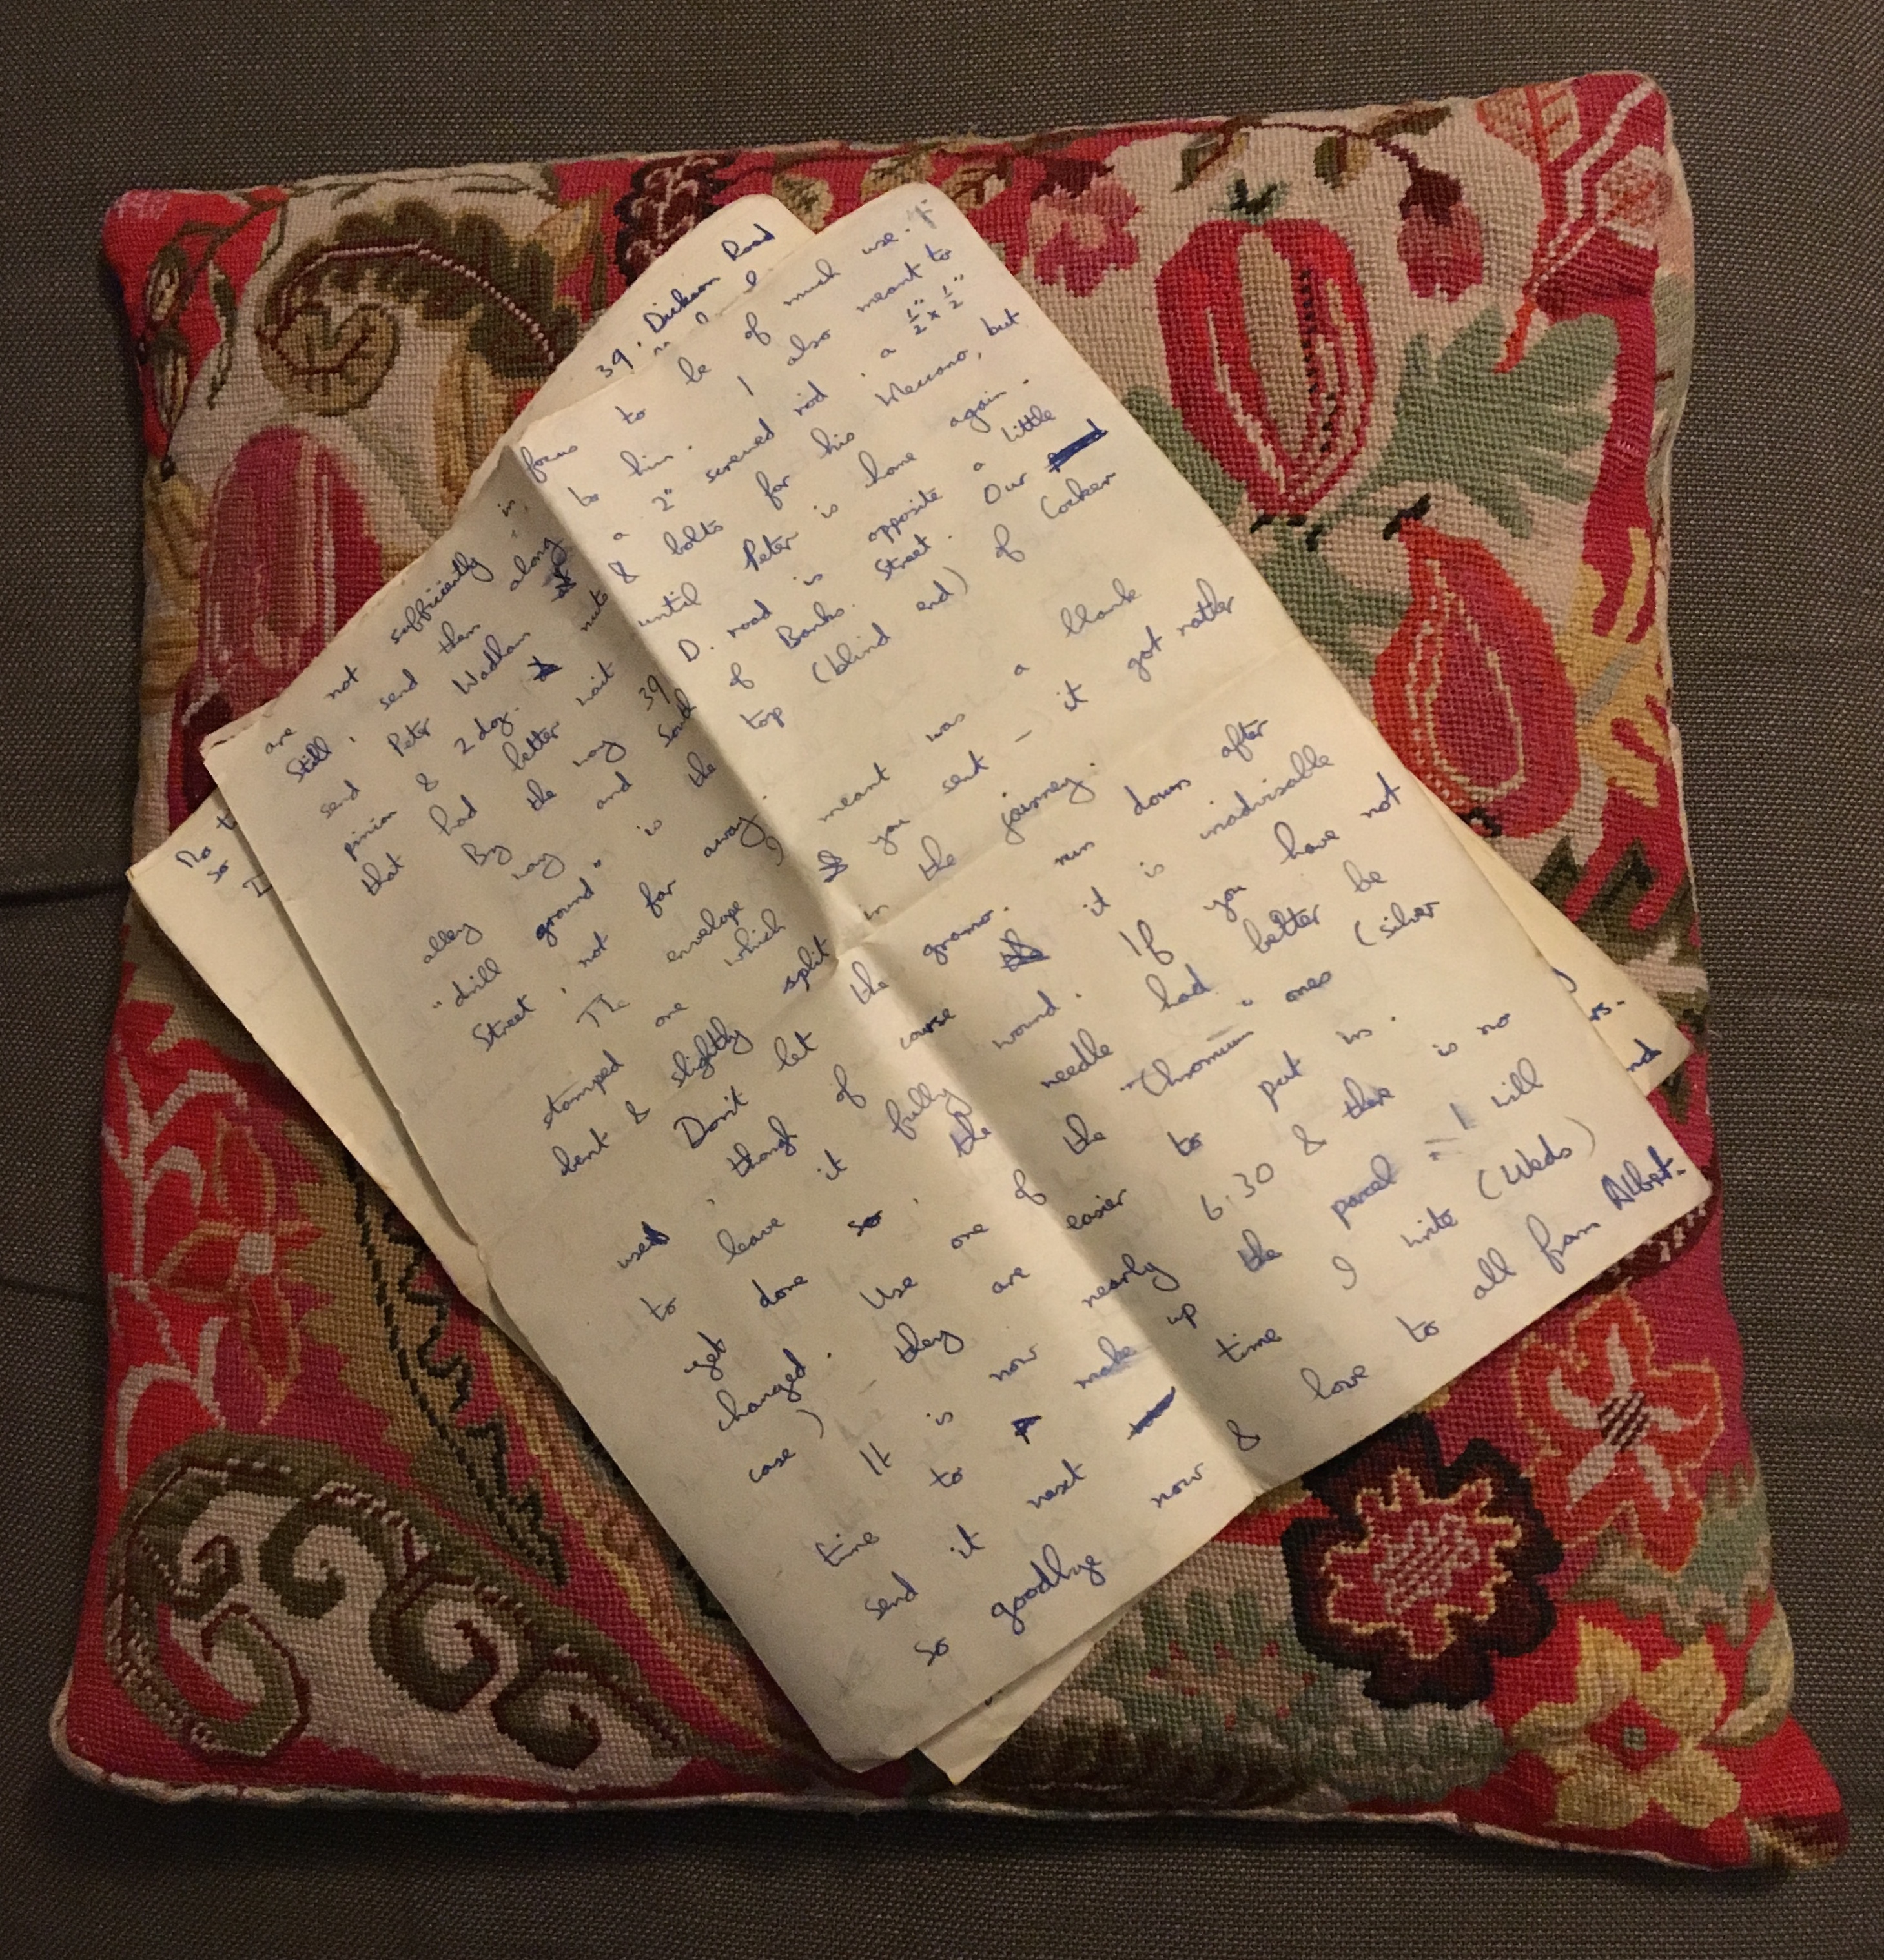 39. Dickson Road
No
so
are not sufficiently in focus to be of much use. I
Still, send them along to him. I also meant to
send Peter Wadham a 2" screwed rod, a ½" x ½"
pinion & 2 dog. nuts & bolts for his Meccano, but
that had better wait until Peter is home again.
By the way 39 D. road is opposite a little
alley way and of Banks. Street. Our
"drill ground" is the top (blind end) of Cocker
Street, not far away.
The envelope I meant was a blank
stamped one which you sent — it got rather
bent & slightly split in the journey.
Don't let the gramo. run down after
used, though of course it is inadvisable
to leave it fully wound. If you have not
yet done so, the needle had better be
changed. Use one of the "Chromium" ones (silver
case) — they are easier to put in.
It is now nearly 6.30 & there is no
time to make up the parcel — I will
send it next time I write (Weds)
so goodbye now & love to all from Albert.